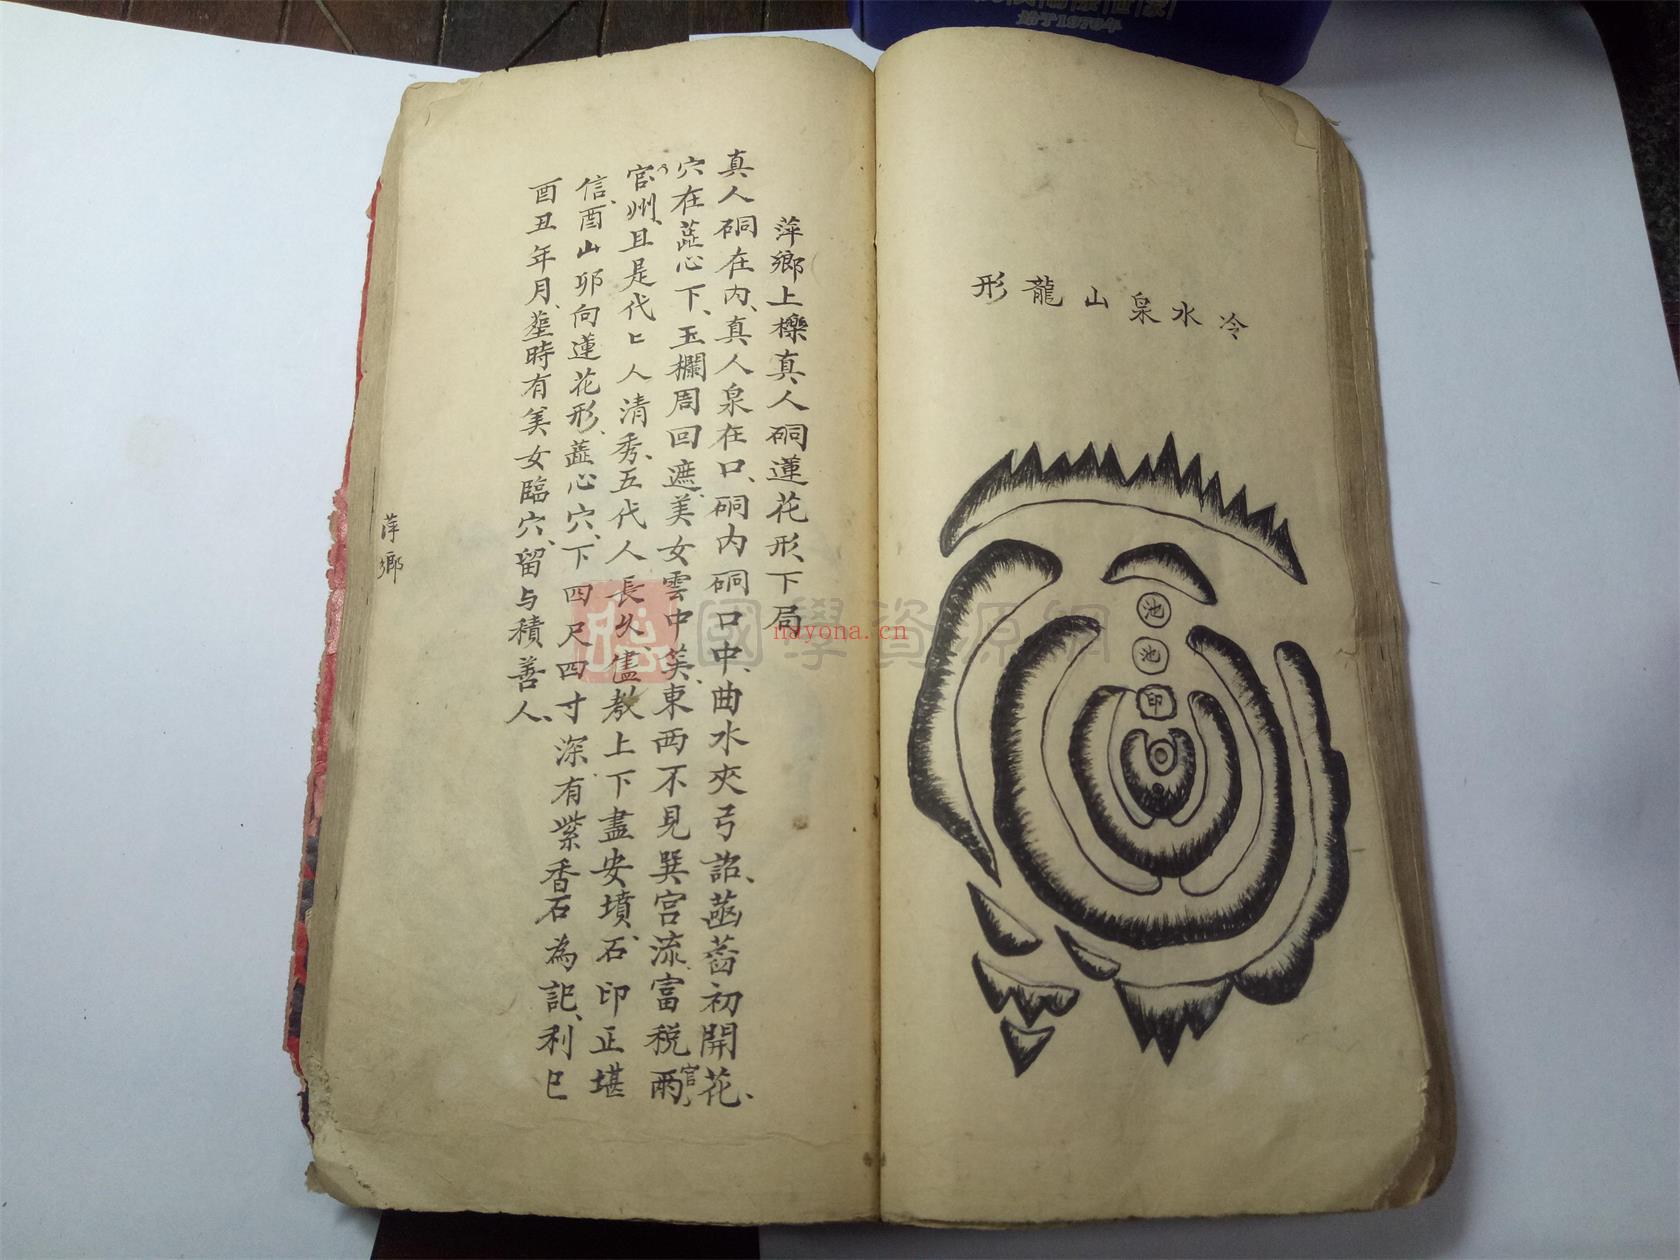 冷水泉山龍形
池
池
印
萍鄉上櫟真人硐蓮花形下局
真人硐在内、真人泉在口、硐内硐口中、曲水夾弓詔、菡萏初開花、
穴在蕋心下、玉欄周回遮、美女雲中笑、東西不見巽宮流、富税兩官
官州、且是代匕人清秀、五代人長久、儘教上下盡安墳、石印正堪
信、酉山卯向蓮花形、蕋心穴、下四尺四寸深、有紫香石為記、利巳
酉丑年月、塟時有美女臨穴、留与積善人、
萍鄉
國學資源網
nayona.cn
始于1970年